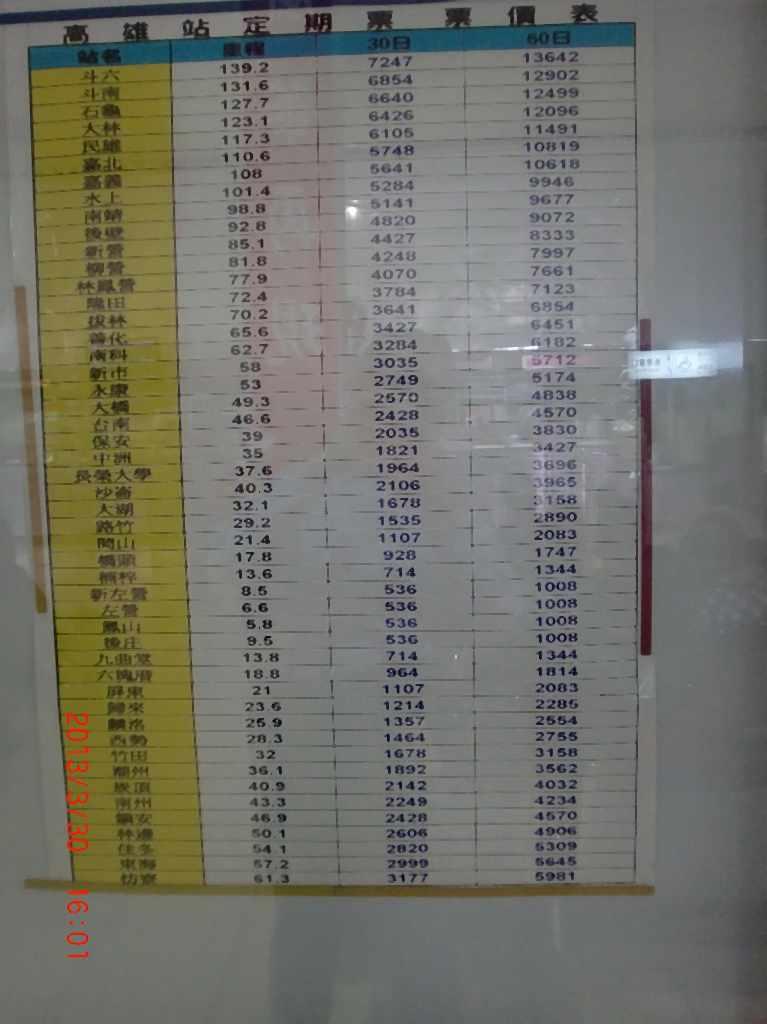 高雄站定期票票價表
站名 里程 30日 60日
斗六 139.2 7247 13642
斗南 131.6 6854 12902
石龜 127.7 6640 12499
大林 123.1 6426 12096
民雄 117.3 6105 11491
嘉北 110.6 5748 10819
嘉義 108 5641 10618
水上 101.4 5284 9946
南靖 98.8 5141 9677
後壁 92.8 4820 9072
新營 85.1 4427 8333
柳營 81.8 4248 7997
林鳳營 77.9 4070 7661
隆田 72.4 3784 7123
拔林 70.2 3641 6854
善化 65.6 3427 6451
南科 62.7 3284 6182
新市 58 3035 5712
永康 53 2749 5174
大橋 49.3 2570 4838
台南 46.6 2428 4570
保安 39 2035 3830
中洲 35 1821 3427
長榮大學 37.6 1964 3696
沙崙 40.3 2106 3965
大湖 32.1 1678 3158
路竹 29.2 1535 2890
岡山 21.4 1107 2083
橋頭 17.8 928 1747
楠梓 13.6 714 1344
新左營 8.5 536 1008
左營 6.6 536 1008
鳳山 5.8 536 1008
後庄 9.5 536 1008
九曲堂 13.8 714 1344
六塊厝 18.8 964 1814
屏東 21 1107 2083
歸來 23.6 1214 2285
麟洛 25.9 1357 2554
西勢 28.3 1464 2755
竹田 32 1678 3158
潮州 36.1 1892 3562
崁頂 40.9 2142 4032
南州 43.3 2249 4234
鎮安 46.9 2428 4570
林邊 50.1 2606 4906
佳冬 54.1 2820 5309
東海 57.2 2999 5645
枋寮 61.3 3177 5981
2013/3/30 16:01